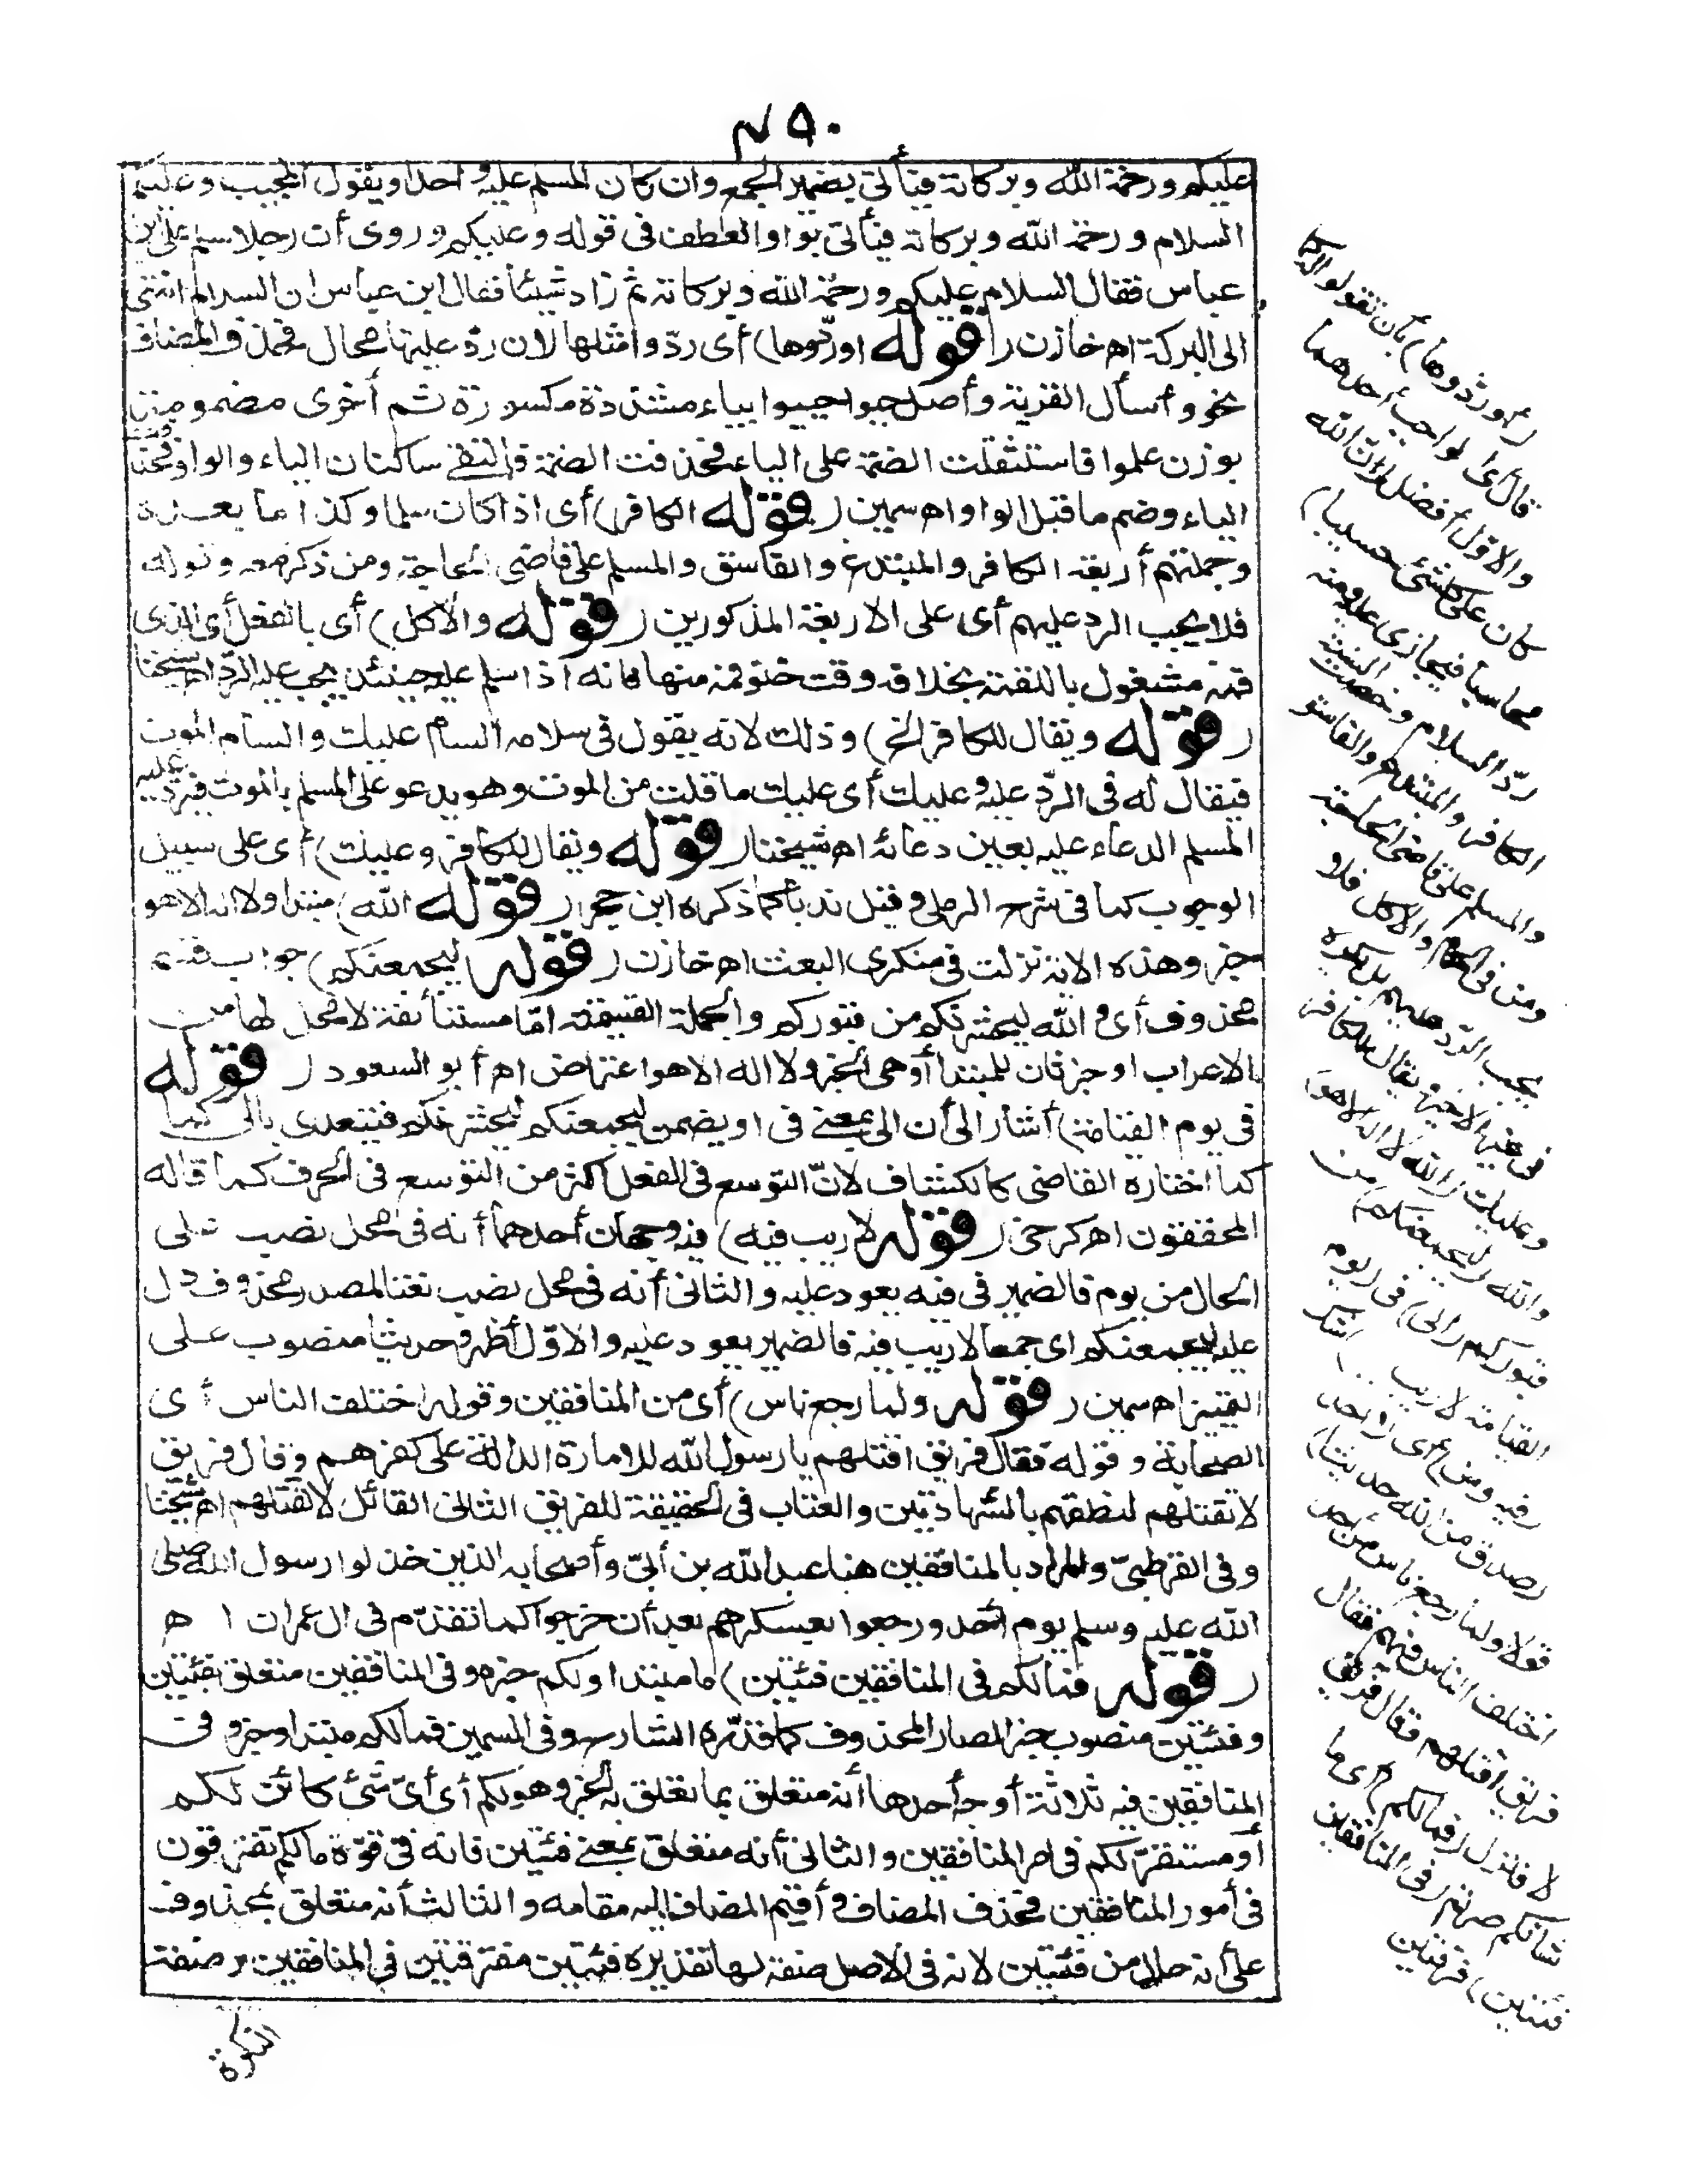 ٤٥٠
عليكم ورحمة الله وبركاته فيأتى بضمير الجمع وان كان المسلم عليه واحدا ويقول المجيب وعليكم
السلام ورحمة الله وبركاته فيأتى بواو العطف فى قوله وعليكم وروى أن رجلا سلم على ابن
عباس فقال السلام عليكم ورحمة الله وبركاته ثم زاد شيئا فقال ابن عباس ان السلام انتهى
الى البركة اهـ خازن (قوله اوردّوها) أى ردّوا مثلها لان ردّ عليها محال فحذف المضاف
نحو وأسأل القرية وأصل حيوا حييوا بياء مشددة مكسورة ثم أخرى مضمومة
بوزن علموا فاستثقلت الضمة على الياء فحذفت الضمة فالتقى ساكنان الياء والواو فحذفت
الياء وضم ما قبل الواو اهـ سمين (قوله الكافر) أى اذا كان سلما وكذا ما بعده
وجملتهم أربعة الكافر والمبتدع والفاسق والمسلم على قاضى الحاجة ومن ذكر معه وقوله
فلا يجب الرد عليهم أى على الاربعة المذكورين (قوله والآكل) أى بالفعل أى الذى
فمه مشغول باللقمة بخلافه وقت خلو فمه منها فانه اذا سلم عليه حينئذ يجب عليه الردّ اهـ شيخنا
(قوله ويقال للكافر الخ) وذلك لانه يقول فى سلامه السام عليك والسام الموت
فيقال له فى الردّ عليه وعليك أى عليك ما قلت من الموت وهو يدعو على المسلم بالموت فيردّ عليه
المسلم الدعاء عليه بعين دعائه اهـ شيخنا (قوله ويقال للكافر وعليك) أى على سبيل
الوجوب كما فى شرح الرملى وقيل ندبا كما ذكره ابن حجر (قوله الله) مبتدا ولا اله الا هو
خبر وهذه الآية نزلت فى منكرى البعث اهـ خازن (قوله ليجمعنكم) جواب قسم
محذوف أى والله ليحشرنكم من قبوركم والجملة القسمية امّا مستأنفة لا محل لها من
الاعراب او خبر ثان للمبتدا أو هى الخبر ولا اله الا هو اعتراض اهـ أبو السعود (قوله
فى يوم القيامة) أشار الى أن الى بمعنى فى او يضمن ليجمعنكم ليحشرنكم فيتعدى بالى كما
كما اختاره القاضى كالكشاف لانّ التوسع فى الفعل اكثر من التوسع فى الحرف كما قاله
المحققون اهـ كرخى (قوله لا ريب فيه) فيه وجهان أحدهما أنه فى محل نصب على
الحال من يوم فالضمير فى فيه يعود عليه والثانى أنه فى محل نصب نعتا لمصدر محذوف دل
عليه ليجمعنكم اى جمعا لا ريب فيه فالضمير يعود عليه والاوّل أظهر وحديثا منصوب على
التمييز اهـ سمين (قوله ولما رجع ناس) أى من المنافقين وقوله اختلف الناس أى
الصحابة وقوله فقال فريق اقتلهم يا رسول الله للامارة الدالة على كفرهم وقال فريق
لا تقتلهم لنطقهم بالشهادتين والعتاب فى الحقيقة للفريق الثانى القائل لا تقتلهم اهـ شيخنا
وفى القرطبىّ والمراد بالمنافقين هنا عبد الله بن أبىّ وأصحابه الذين خذلوا رسول الله صلى
الله عليه وسلم يوم أحد ورجعوا بعسكرهم بعد أن خرجوا كما تقدّم فى ال عمران اهـ
(قوله فما لكم فى المنافقين فئتين) ما مبتدا ولكم خبره وفى المنافقين متعلق بفئتين
وفئتين منصوب خبر لصار المحذوف كما قدّره الشارح وفى السمين فما لكم مبتدا وخبر وفى
المنافقين فيه ثلاثة أوجه أحدها أنه متعلق بما تعلق به الخبر وهو لكم أى أىّ شئ كائن لكم
أو مستقرّ لكم فى امر المنافقين والثانى أنه متعلق بمعنى فئتين فانه فى قوّة ما لكم تفترقون
فى أمور المنافقين فحذف المضاف وأقيم المضاف اليه مقامه والثالث أنه متعلق بمحذوف
على أنه حال من فئتين لانه فى الاصل صفة لها تقديره فئتين مفترقتين فى المنافقين وصفة
النكرة
(أو ردّوها) بأن تقولوا له كما
قال أى الواجب أحدهما
والاوّل أفضل (انّ الله
كان على كل شئ حسيبا)
محاسبا فيجازى عليه ومنه
ردّ السلام وخصت السنة
الكافر والمبتدع والفاسق
والمسلم على قاضى الحاجة
ومن فى الحمام والآكل فلا
يجب الردّ عليهم بل يكره
فى غير الاخير ويقال للكافر
وعليك (الله لا اله الا هو)
والله (ليجمعنكم) من
قبوركم (الى) فى (يوم
القيامة لا ريب) شك
(فيه ومن) أى لا أحد
(أصدق من الله حديثا)
قولا ولما رجع ناس من أحد
اختلف الناس فيهم فقال
فريق اقتلهم وقال فريق
لا فنزل (فما لكم) أى ما
شأنكم صرتم (فى المنافقين
فئتين) فرقتين